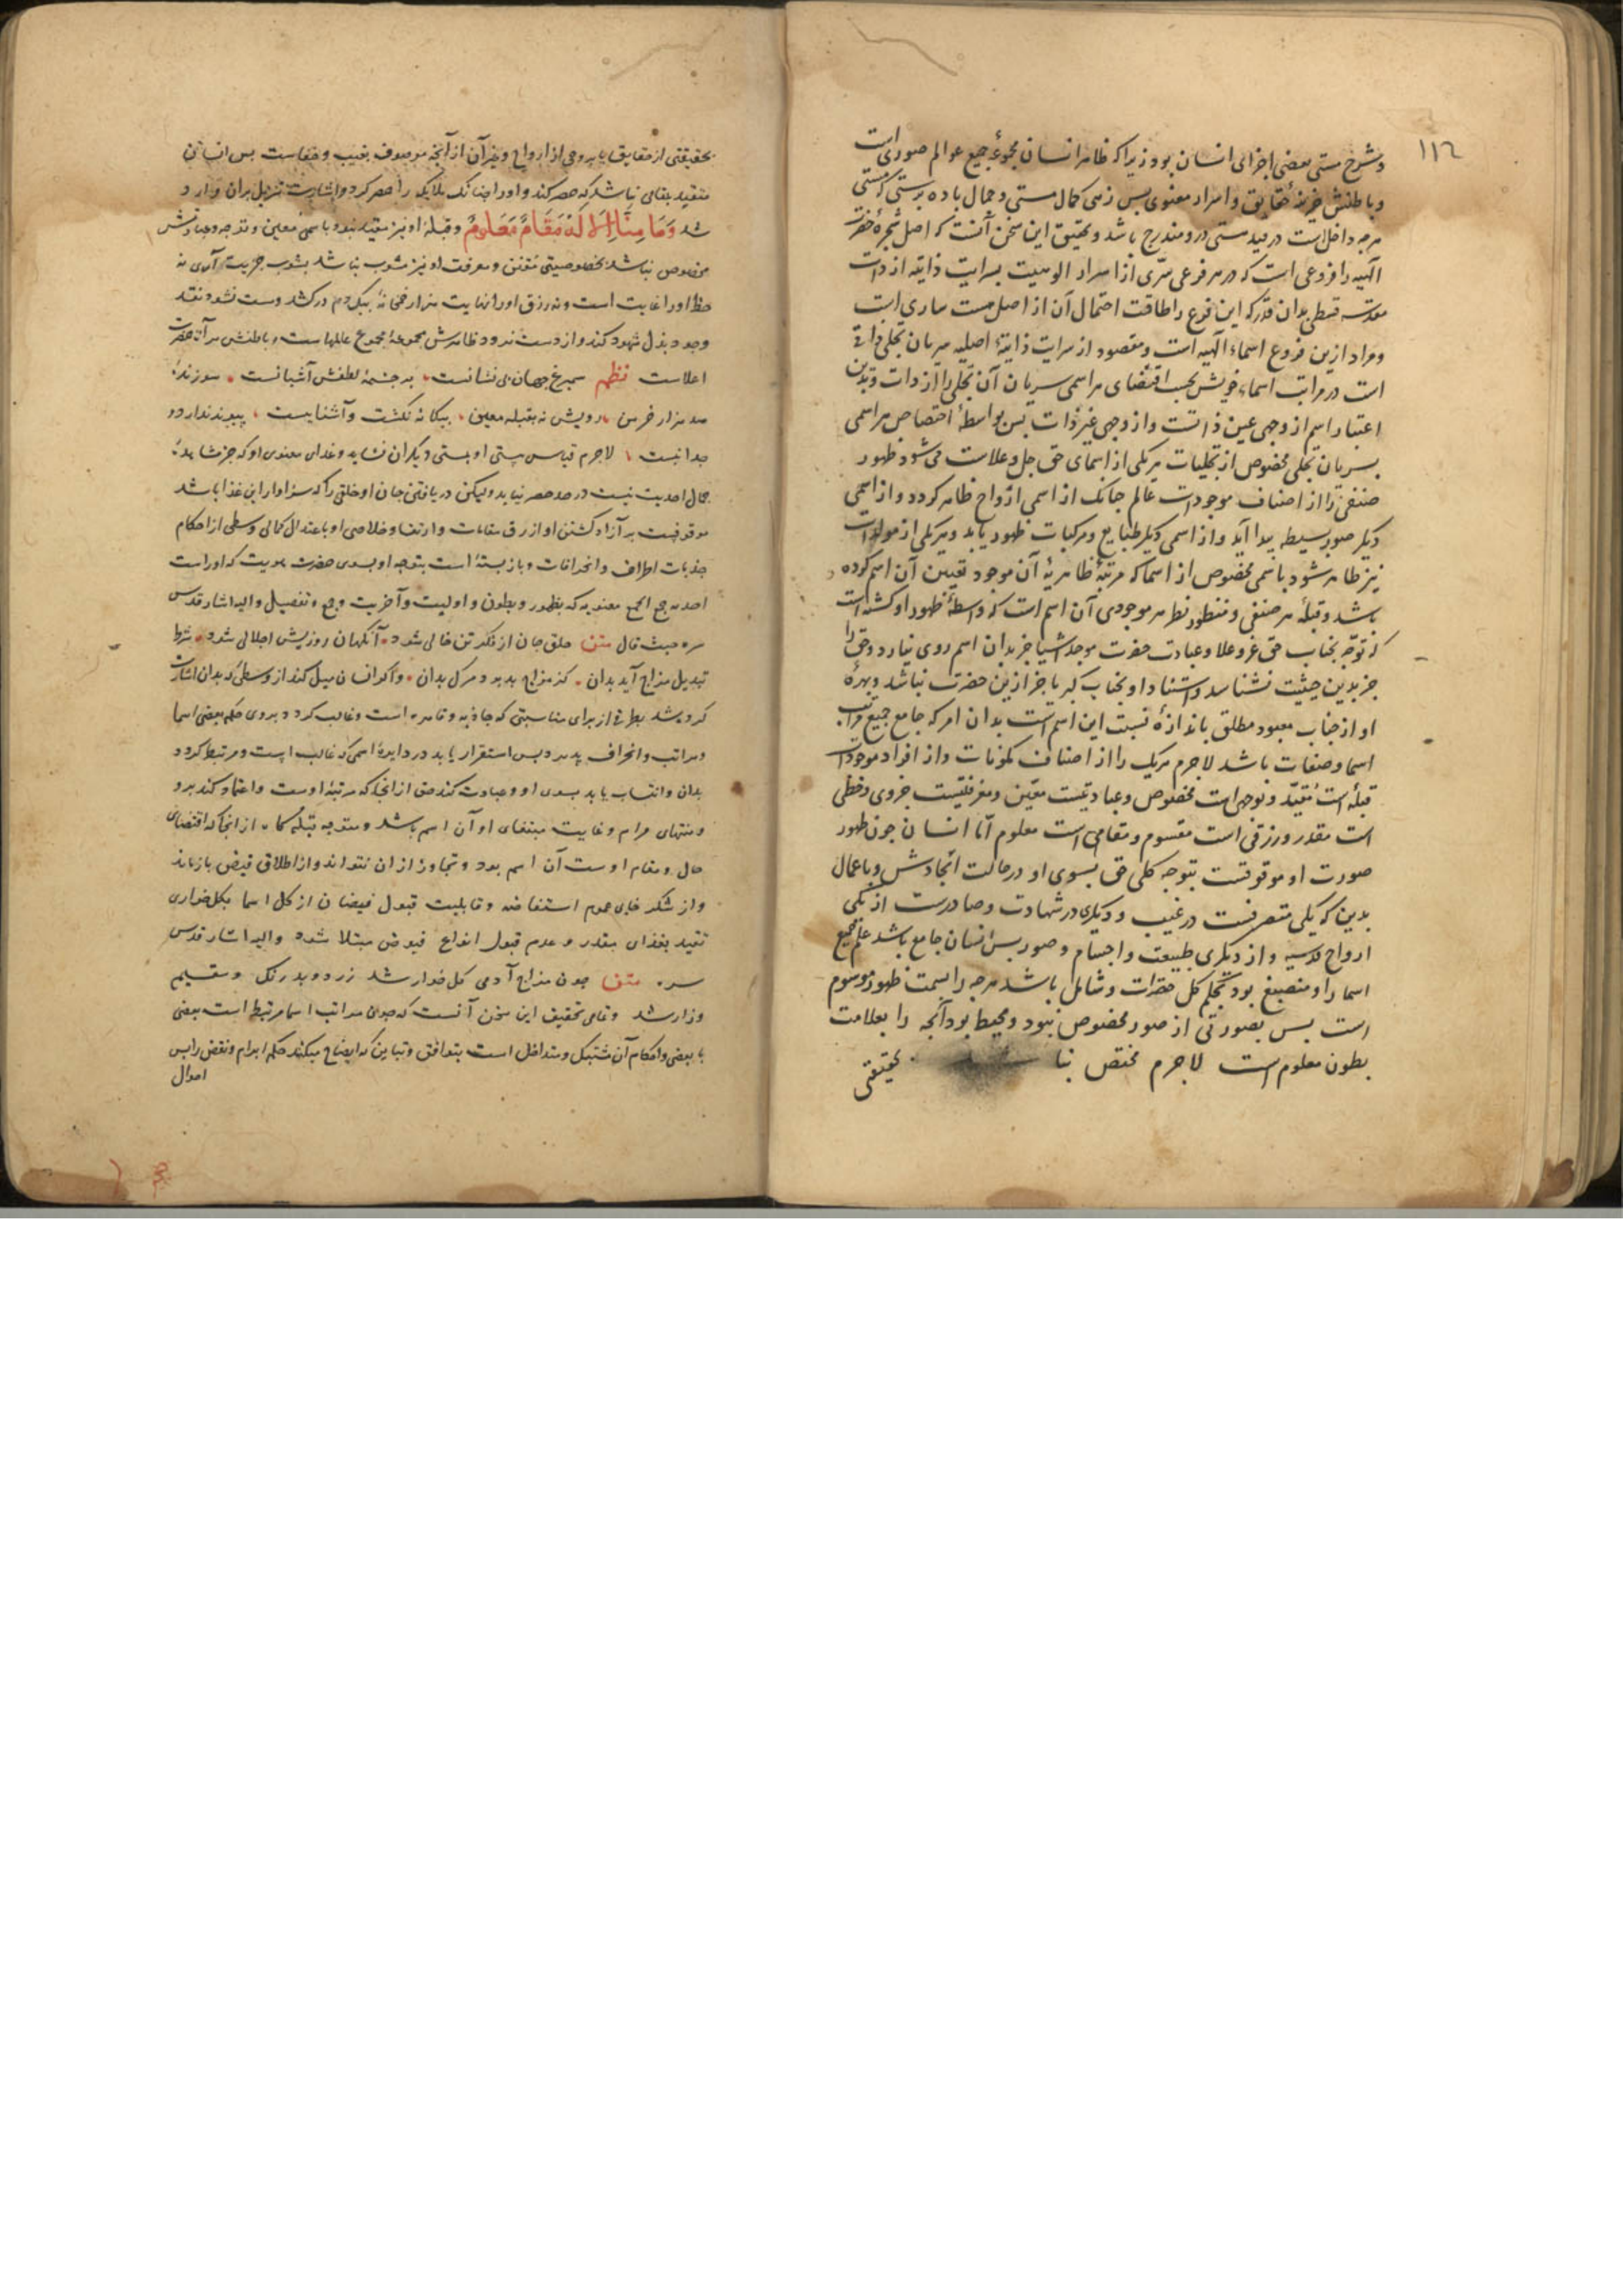 ١١٦
و شرح مستی بعضی اجزای انسان بود زیرا که ظاهر انسان مجموعهٔ جمیع عوالم صوری است
و باطنش خزینهٔ حقایق و اسرار معنوی پس زهی کمال مستی و جمال باده پرستی که مستی
هرچه داخل است در قید هستی درو مندرج باشد و تحقیق این سخن آنست که اصل شجرهٔ حضرت
الهیه را فروعی است که در هر فرعی سرّی از اسرار الوهیت بسرایت ذاتیه از ذات
مقدسه قسطی بدان قدر که این فرع را طاقت احتمال آن از اصل هست ساری است
و مراد ازین فروع اسماء الهیه است و مقصود از سرایت ذاتیهٔ اصلیه سریان تجلی ذات
است در مراتب اسماء خویش بحسب اقتضای هر اسمی سریان آن تجلی را از ذات و بدین
اعتبار اسم از وجهی عین ذاتست و از وجهی غیر ذات پس بواسطهٔ اختصاص هر اسمی
بسریان تجلی مخصوص از تجلیات هر یکی از اسمای حق جل و علاست می شود ظهور
صنفی را از اصناف موجودات عالم چنانک از اسمی ارواح ظاهر کردد و از اسمی
دیکر صور بسیطه پیدا آید و از اسمی دیکر طبایع و مرکبات ظهور یابد و هر یکی از مولدات
نیز ظاهر شود باسمی مخصوص از اسما که مرتبهٔ ظاهریهٔ آن موجود تعیین آن اسم کرده
باشد و قبلهٔ هر صنفی و منظور نظر هر موجودی آن اسم است که واسطهٔ ظهور او کشته است
که توجّه بجناب حق عز و علا و عبادت حضرت موجد اشیا جز بدان اسم روی نیارد و حق را
جز بدین حیثیت نشناسد و استناد او بجناب کبریا جز ازین حضرت نباشد و بهرهٔ
او از جناب معبود مطلق باندازهٔ نسبت این اسم است بدان امر که جامع جمیع مراتب
اسما و صفات باشد لاجرم هریک را از اصناف مکونات و از افراد موجودات
قبله است مقیّد و توجهی است مخصوص و عبادتیست معیّن و معرفتیست جزوی و حظی
است مقدر و رزقی است مقسوم و مقامی است معلوم امّا انسان چون ظهور
صورت او موقوفست بتوجه کلی حق بسوی او در حالت ایجادش و باعمال
بدین که یکی متصرفست در غیب و دیکری در شهادت و صادرست از یکی
ارواح قدسیه و از دیکری طبیعت و اجسام و صور پس انسان جامع باشد علم جمیع
اسما را و منصبغ بود بحکم کل حضرات و شامل باشد هرچه را بسمت ظهور موسوم
است پس بصورتی از صور مخصوص نبود و محیط بود آنچه را بعلامت
بطون معلوم است لاجرم مختص نباشد بحقیقتی
بحقیقتی از حقایق یا بروحی از ارواح و غیر آن از آنچه موصوف بغیب و خفاست پس انسانی
متقید بمقامی نباشد که حصر کند او را چنانک ملایکه را حصر کرد و اشارت تنزیل بران وارد
شد وَمَا مِنَّا إِلَّا لَهُ مَقَامٌ مَعْلُومٌ و قبلهٔ او نیز مقید نبود باسمی معین و توجه و عبادتش
مخصوص نباشد بخصوصیتی مقنن و معرفت او نیز مشوب نباشد بشوب جزیت آری نه
حظ او را غایت است و نه رزق او را نهایت هزار خمخانه بیکدم درکشد و مست نشود نقد
وجود بذل شهود کند و از دست نرود ظاهرش مجموعهٔ مجموع عالمهاست و باطنش مرآت حضرت
اعلاست نظم سیمرغ جهان بی نشانست بر چشمهٔ لطفش آشیانست سوزندهٔ
صد هزار خرمن رویش نه بقبله معین بیکانه نکشت و آشنا نیست پیوند ندارد و
جدا نیست لاجرم قیاس مستی او بمستی دیکران نشاید و غذای معنوی او که جز مشاهدهٔ
جمال احدیت نیست در حد حصر نیاید ولیکن دریافتن جان او خلقی را که سزاوار این غذا باشد
موقوفست بر آزاد کشتن او از رق مقامات و ارتقا و خلاصی او باعتدال کمالی وسطی از احکام
جذبات اطراف و انحرافات و بازبسته است بتوجه او بسوی حضرت هویت که او راست
احدیت جمع الجمع معنویه که بظهور و بطون و اولیت و آخریت و جمع و تفصیل و الیه اشار قدس
سره حیث قال متن حلق جان از فکر تن خالی شود آنکهان روزیش اجلالی شود شرط
تبدیل مزاج آید بدان کز مزاج بد بود مرک بدان و اکر انسان میل کند از وسطی که بدان اشارت
کرده شد بطرفی از برای مناسبتی که جاذبه و قاهره است و غالب کردد بروی حکم بعضی اسما
و مراتب و انحراف پذیرد پس استقرار یابد در دایرهٔ اسمی که غالب است و مرتبط کردد
بدان و انتساب یابد بسوی او و عبادت کند حق از آنجا که مرتبهٔ اوست و اعتماد کند برو
و منتهای مرام و غایت مبتغای او آن اسم باشد و متوجه قبله کاه از انجا که اقتضای
حال و مقام اوست آن اسم بود و تجاوز از ان نتواند و از اطلاق فیض باز ماند
و از شکر خای عموم استفاضه و قابلیت قبول فیضان از کل اسما بکل خواری
تقید بغذای مقدر و عدم قبول انواع فیوض مبتلا شود و الیه اشار قدس
سره متن چون مزاج آدمی کل خوار شد زرد و بد رنک و سقیم
و زار شد و تمامی تحقیق این سخن آنست که چون مراتب اسما مرتبط است بعضی
با بعضی و احکام آن مشتبک و متداخل است بتوافق و تباین که ایضاح میکند حکم ابرام و نقض را پس
احوال